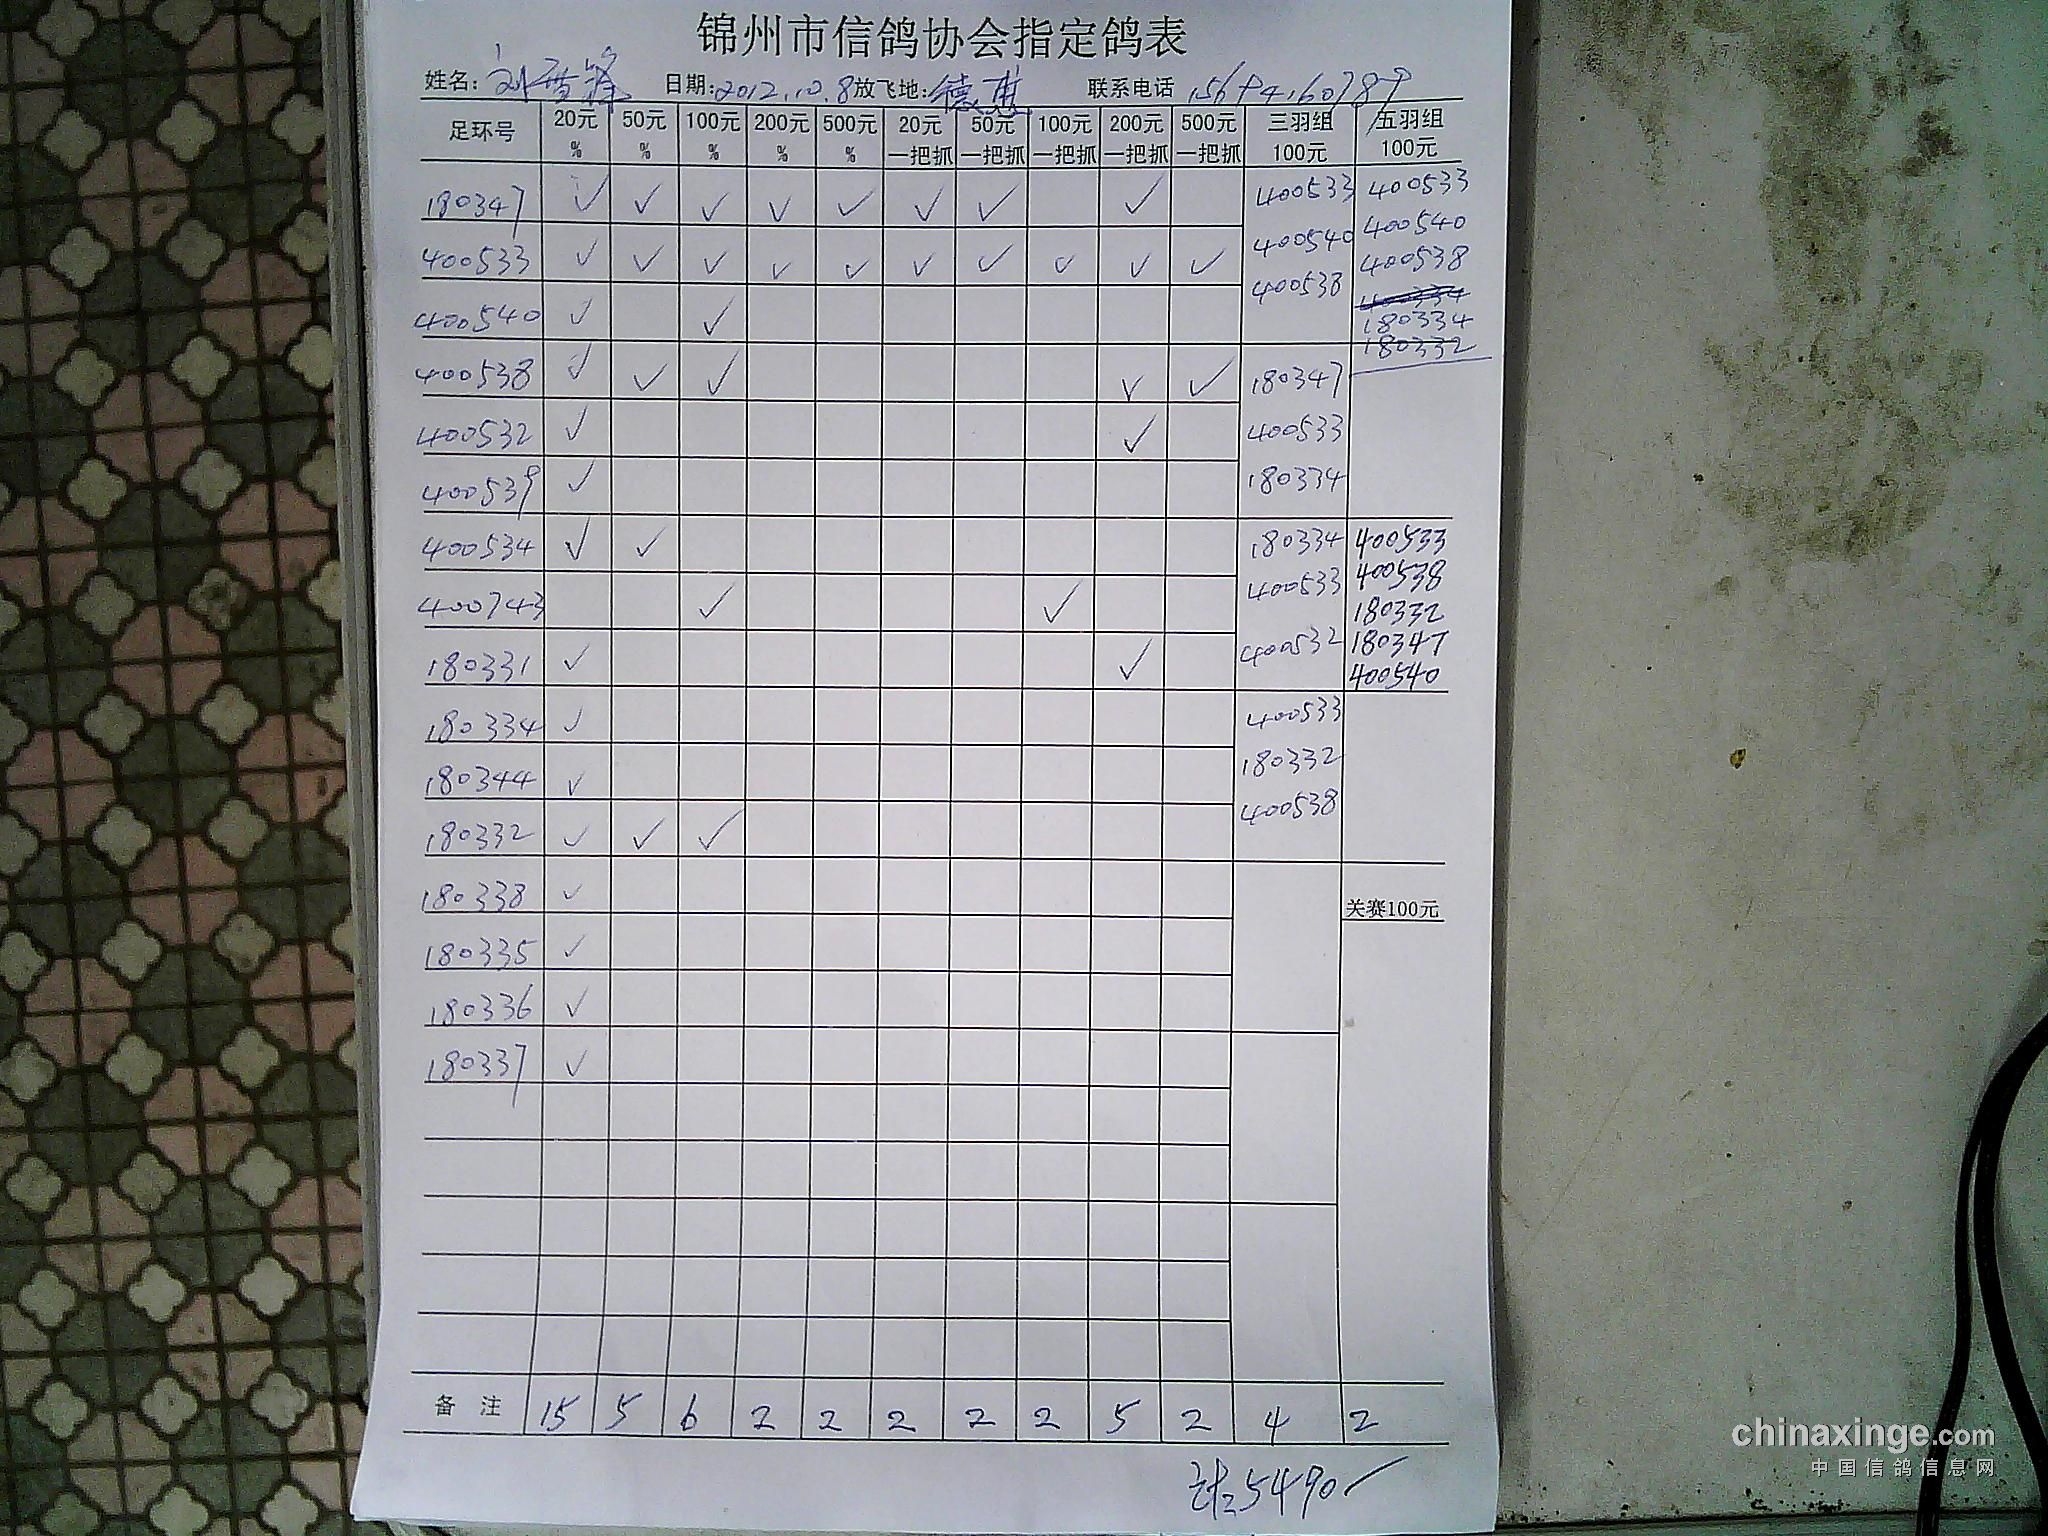 锦州市信鸽协会指定鸽表
姓名: 刘雪峰 日期: 2012.10.8 放飞地: 德惠 联系电话
足环号 20元% 50元% 100元% 200元% 500元% 20元一把抓 50元一把抓 100元一把抓 200元一把抓 500元一把抓 三羽组100元 五羽组100元
180347 ✓ ✓ ✓ ✓ ✓ ✓ ✓ ✓
400533 ✓ ✓ ✓ ✓ ✓ ✓ ✓ ✓ ✓ ✓
400540 ✓ ✓
400538 ✓ ✓ ✓ ✓ ✓
400532 ✓ ✓
400539 ✓
400534 ✓ ✓
400743 ✓ ✓
180331 ✓ ✓
180334 ✓
180344 ✓
180332 ✓ ✓ ✓
180338 ✓
180335 ✓
180336 ✓
180337 ✓
400533
400540
400538
180347
400533
180334
180334
400533
400532
400533
180332
400538
400533
400540
400538
180334
180332
400533
400538
180332
180347
400540
关赛100元
备注 15 5 6 2 2 2 2 2 5 2 4 2
计:5490
chinaxinge.com
中国信鸽信息网